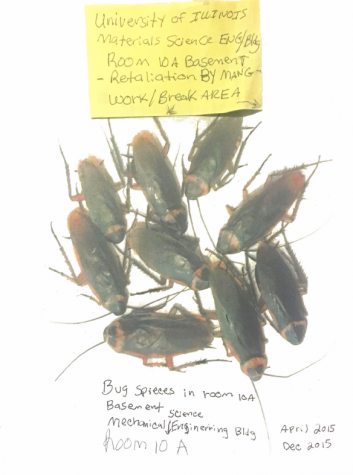 University of ILLINOIS
Materials Science ENG/Bldg
ROOM 10A Basement
- Retaliation BY MANG -
WORK/BREAK AREA
Bug Spieces in room 10A
Basement
Science
Mechanical/Enginerring Bldg
Room 10 A
April 2015
Dec 2015